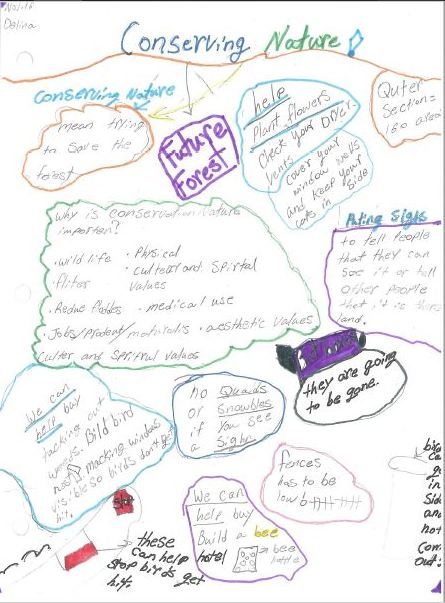 Nov.18
Delina
Conserving Nature
Conserving Nature
mean trying
to save the
forest
Future
Forest
help
Plant flowers
Check your Dryer
vents
cover your
window wells
and keep your
cats in side
Quter
Section=
160 
Puting Signs
to tell People
that they can
See it or tell
other people
that it is
land.
Why is conservation Nature
importen?
•wild life
fliter
•Physical
•culter and Spirtal
values
•Redue flodes
•medical use
•Jobs/prodent/materalis
•aesthetic values
Culter and Spirtul values
they are going
to be gone.
We can
help buy
tacking out
weeds. Bild bird
macking windows
visible so birds don't get
hit.
no Quads
or Snowbles
if You see
a Sighn
fences
has to be
low
these
can help
stop birds get
hit.
We can
help buy
Build a bee
hotel
bee
hottle
in
Sid
and
not
Com
out.